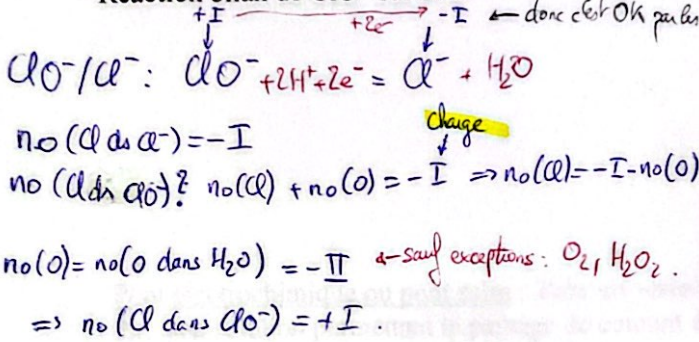 +I +2e⁻ -I ← donc c'est OK par les
ClO⁻/Cl⁻ : ClO⁻ +2H⁺+2e⁻ = Cl⁻ + H₂O
charge
no (Cl ds Cl⁻) = -I
no (Cl ds ClO⁻)? no(Cl) + no(O) = -I ⇒ no(Cl) = -I - no(O)
no(O) = no(O dans H₂O) = -II ← sauf exceptions : O₂, H₂O₂.
⇒ no (Cl dans ClO⁻) = +I.